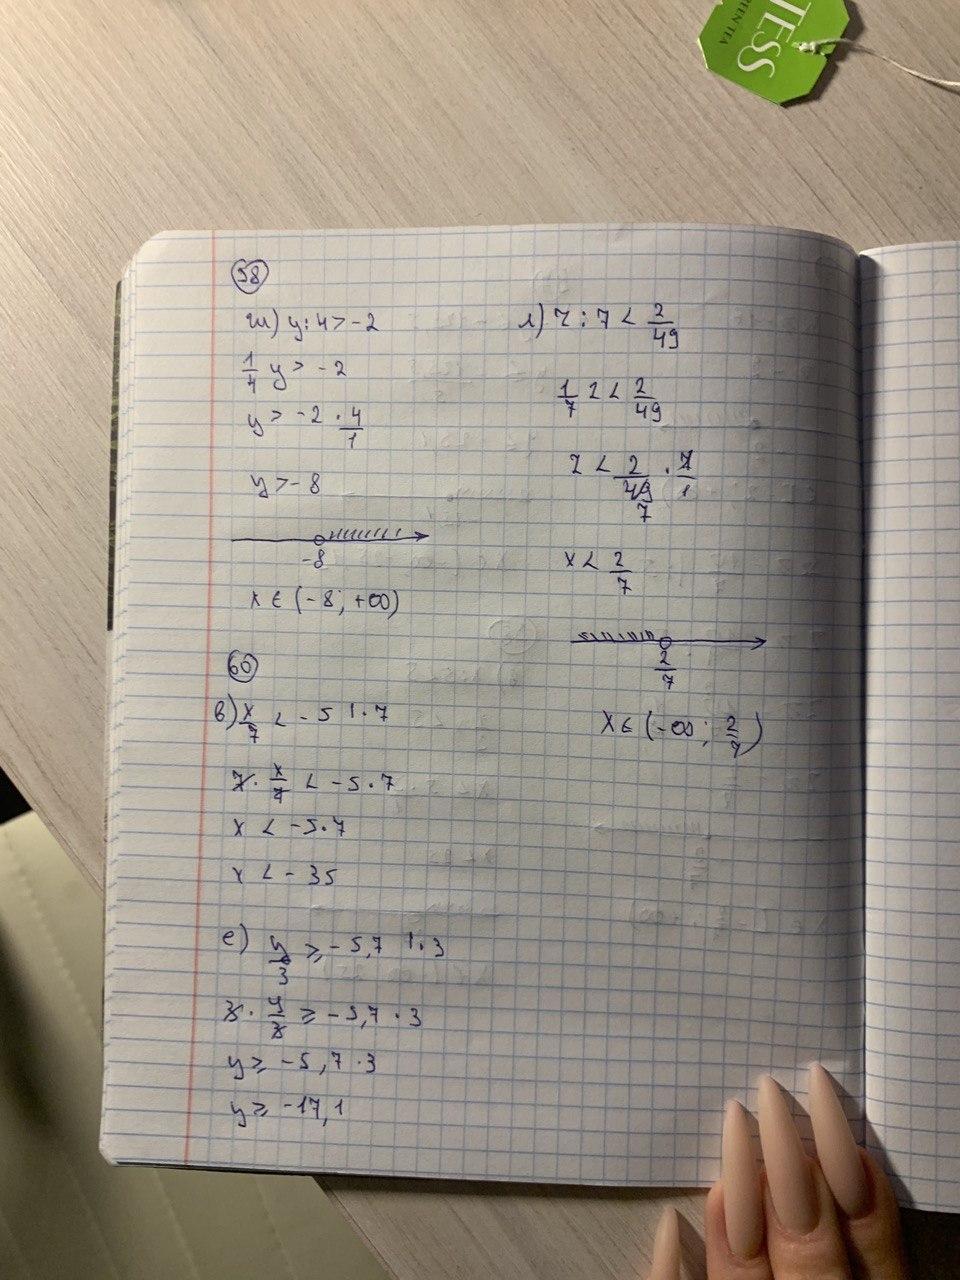 TESS
GREEN TEA
58
ж) y : 4 > -2
1/4 y > -2
y > -2 · 4/1
y > -8
-8
x ∈ (-8; +∞)
л) z : 7 < 2/49
1/7 z < 2/49
z < 2/49 · 7/1
7
x < 2/7
2/7
x ∈ (-∞; 2/7)
60
в) x/7 < -5 | · 7
7 · x/7 < -5 · 7
x < -5 · 7
x < -35
е) y/3 ⩾ -5,7 | · 3
3 · y/3 ⩾ -5,7 · 3
y ⩾ -5,7 · 3
y ⩾ -17,1